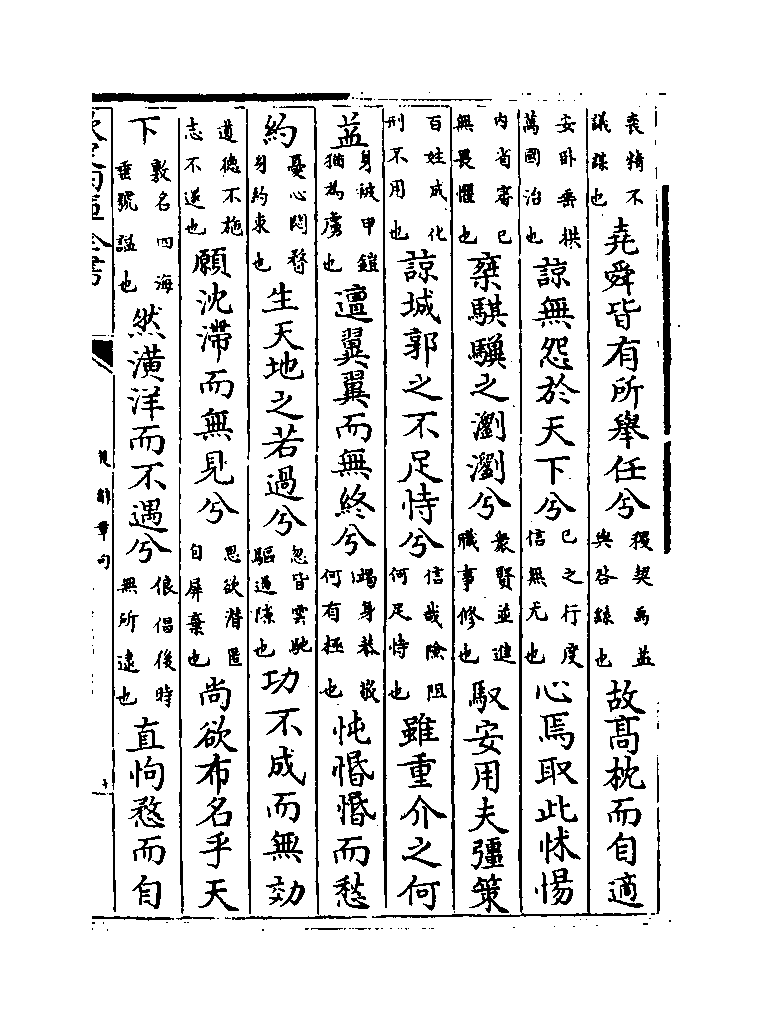 喪精不議謀也堯舜皆有所舉任兮稷契禹益與咎繇也故髙枕而自適
安卧垂拱萬國治也諒無怨於天下兮己之行度信無尤也心焉取此怵惕
内省審己無畏懼也椉騏驥之瀏瀏兮衆賢並進職事修也馭安用夫彊策
百姓成化刑不用也諒城郭之不足恃兮信哉險阻何足恃也雖重介之何
益身被甲鎧猶為虜也邅翼翼而無終兮竭身恭敬何有極也忳惽惽而愁
約憂心悶瞀身約束也生天地之若過兮忽皆雲馳驅過隙也功不成而無効
道徳不施志不遂也願沈滯而無見兮思欲潛匿自屏棄也尚欲布名乎天
下敷名四海垂號諡也然潢洋而不遇兮俍倡後時無所逮也直怐愗而自